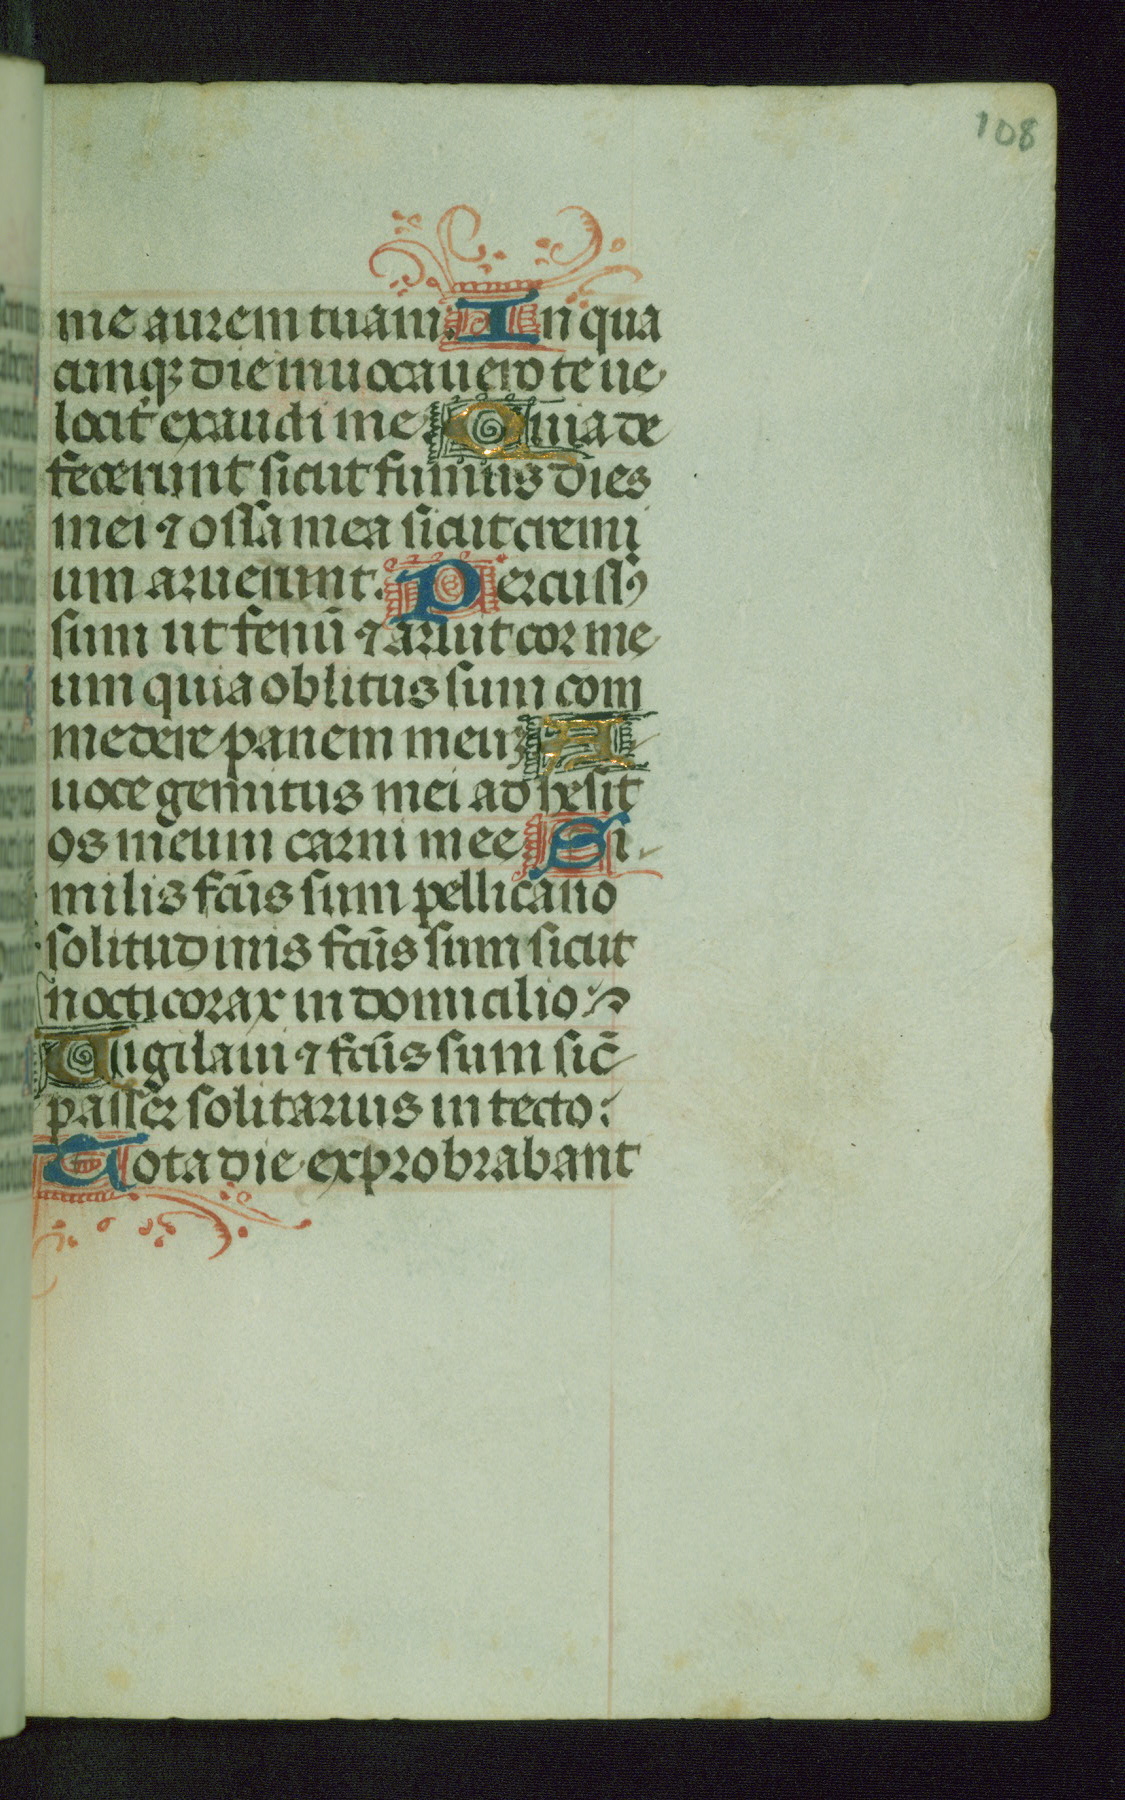 108
me aurem tuam. In qua
cunqꝫ die inuocauero te ue
locit̾ exaudi me. Quia de
fecerunt sicut fumus dies
mei ⁊ ossa mea sicut cremi
um aruerunt. Percussꝰ
sum ut fenū ⁊ aruit cor me
um quia oblitus sum com
medere panem meuꝫ A
uoce gemitus mei adhesit
os meum carni mee. Si
milis fcūs sum pellicano
solitudinis fcūs sum sicut
nocticorax in domicilio.
Uigilaui ⁊ fcūs sum sic̄
passer solitarius in tecto:
Tota die exprobrabant